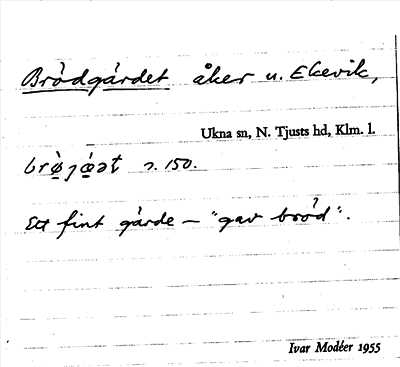 Brödgärdet åker u. Ekevik,
Ukna sn, N. Tjusts hd, Klm. l.
s. 150.
Ett fint gärde — "gav bröd".
Ivar Modéer 1955